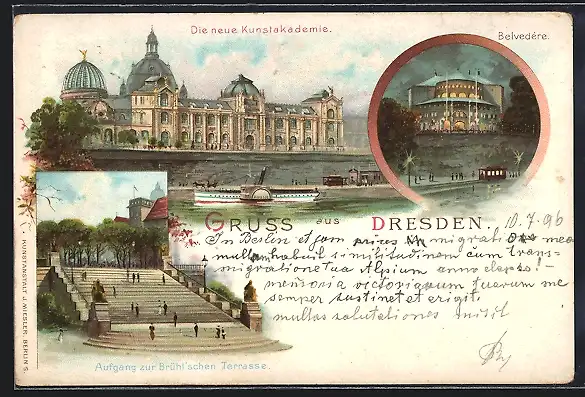 Die neue Kunstakademie.
Belvedére.
GRUSS aus DRESDEN.
10.7.96
In Berlin et jam prius migratio mea
multam habuit similitudinem cum trans-
migratione Tua Alpium anno elapso! -
memoria victoriarum tuarum me
semper sustinet et erigit
multas salutationes misit
Aufgang zur Brühl'schen Terrasse.
KUNSTANSTALT J. MIESLER, BERLIN S.